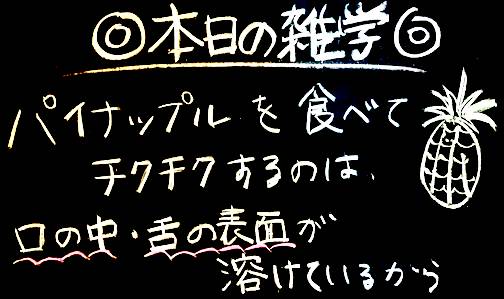 ◎本日の雑学◎
パイナップルを食べて
チクチクするのは、
口の中・舌の表面が
溶けているから